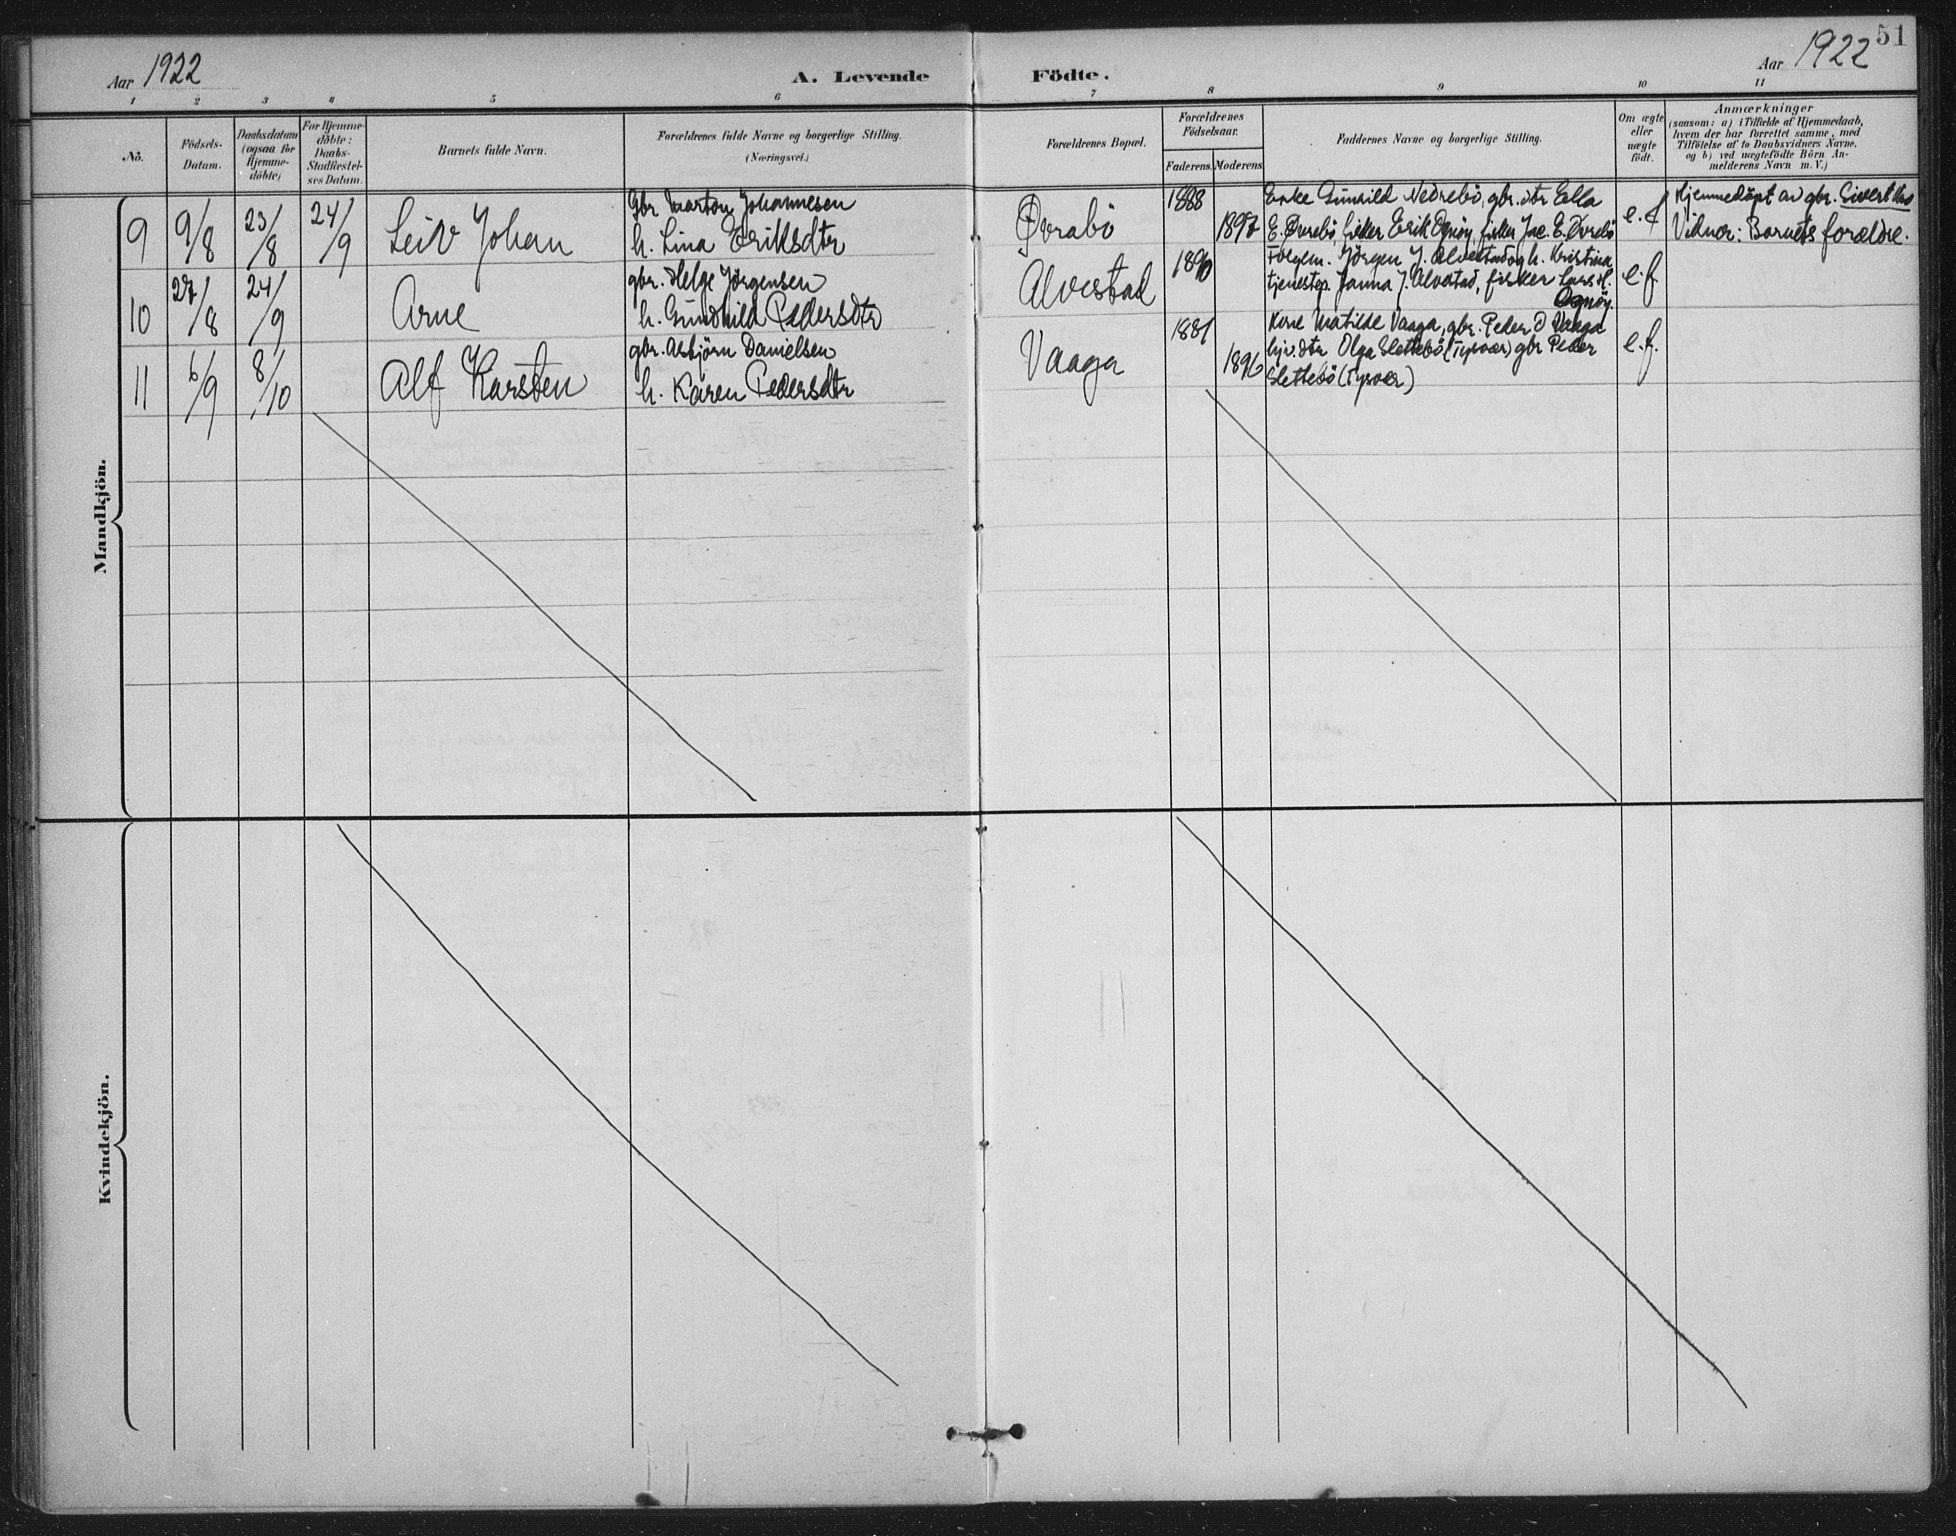 Aar 1922
A. Levende Födte.
Aar 1922
51
1 2 3 4 5 6 7 8 9 10 11
No.
Födsels-
Datum.
Daabsdatum
(ogsaa for
Hjemme-
döbte)
For Hjemme-
döbte:
Daabs-
Stadfæstel-
ses Datum.
Barnets fulde Navn.
Forældrenes fulde Navne og borgerlige Stilling.
(Næringsvei.)
Forældrenes Bopæl.
Forældrenes
Födselsaar.
Faderens. Moderens.
Faddernes Navne og borgerlige Stilling.
Om ægte
eller
uægte
födt.
Anmærkninger
(saasom: a) i Tilfælde af Hjemmedaab,
hvem der har forrettet samme, med
Tilföielse af to Daabsvidners Navne,
og b) ved uægtefödte Börn An-
melderens Navn m. V.)
Mandkjön.
9
9/8
23/8
24/9
Leiv Johan
Gbr Marton Johannesen
h. Lina Eriksdtr
Øvrabö
1888
1897
Enke Gunhild Nedrebö, gbr. dtr Ella
E. Øvrebö, fisker Erik Ognöy, fisker Jac. E. Øvrebö
e. f
Hjemmedöpt av gbr. Sivert
Vidner: Barnets forældre.
10
27/8
24/9
Arne
gbr. Helge Jörgensen
h. Gundhild Pedersdtr
Alvestad
1890
Jörgen J. Alvestad og h. Kristina
tjenestep. Janna J. Alvestad, fisker Lars H.
Ognöy.
e. f
11
6/9
8/10
Alf Karsten
gbr. Asbjörn Danielsen
h. Karen Pedersdtr
Vaaga
1881
1896
Kone Matilde Vaaga, gbr. Peder D Vaaga
dtr Olga Slettebö (Tysvær) gbr Peder
Slettebö (Tysvær)
e. f.
Kvindekjön.